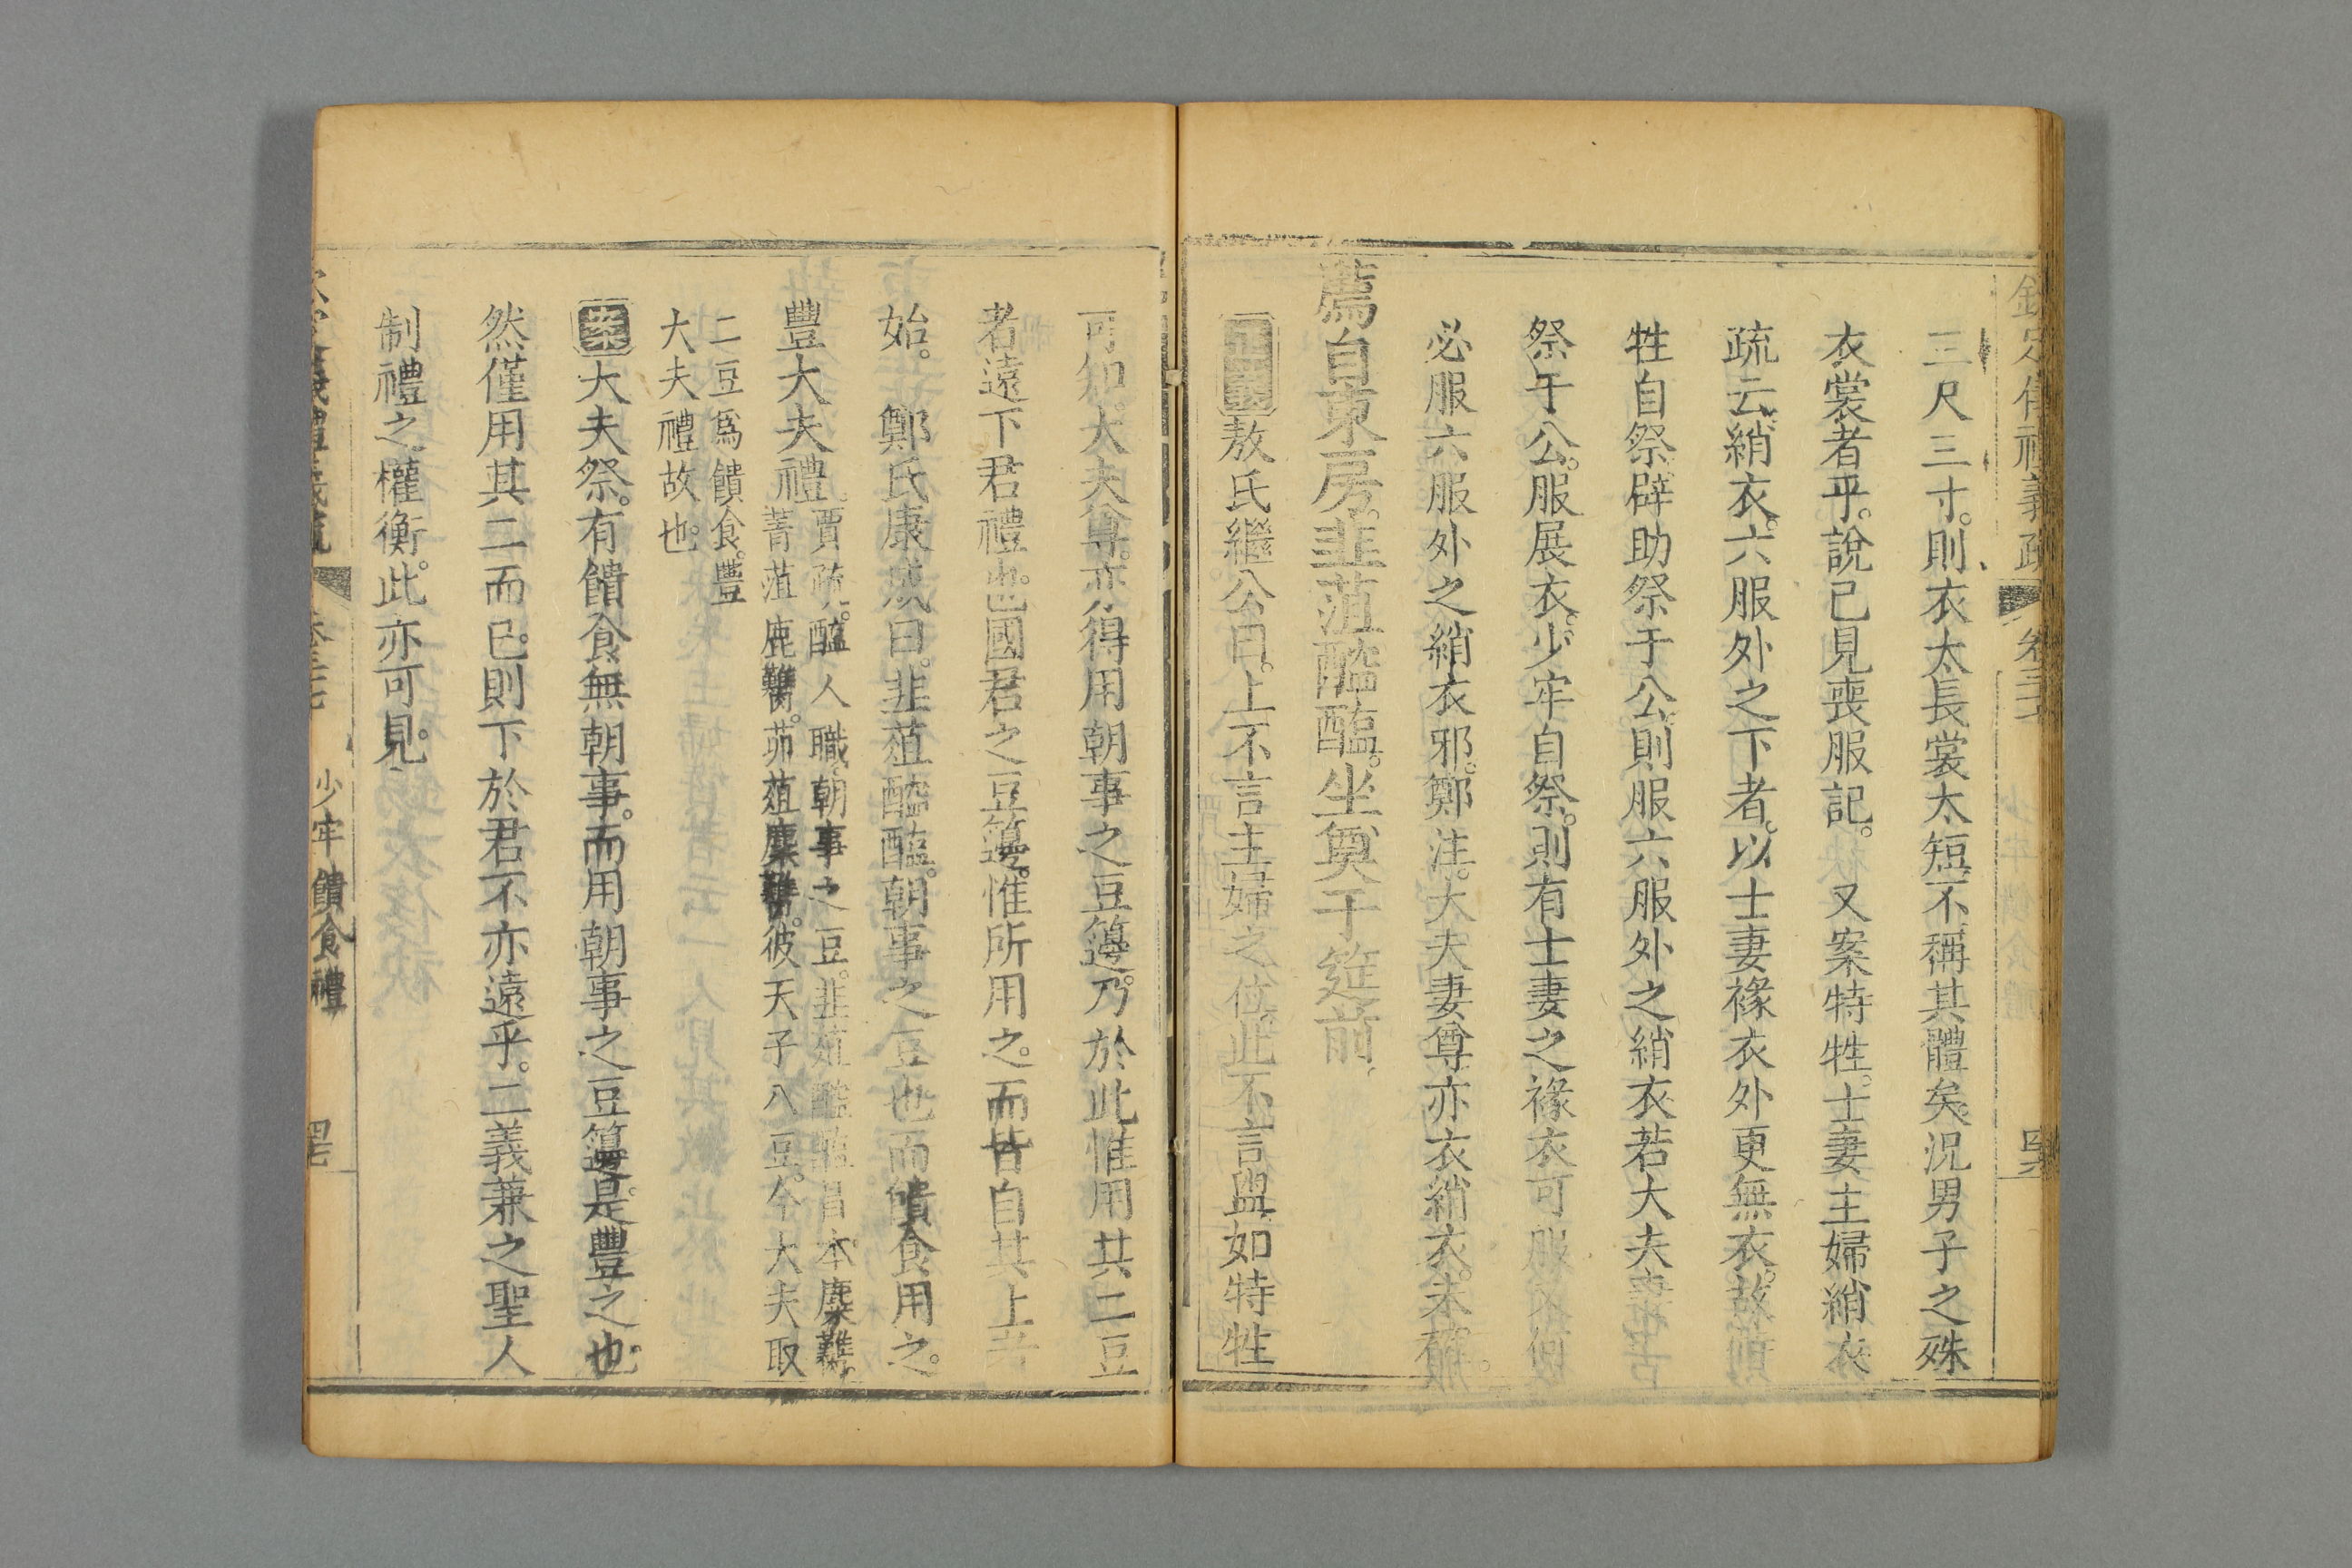 三尺三寸。則衣太長裳太短。不稱其體矣。況男子之殊
衣裳者乎。說已見喪服記。又案特牲。士妻主婦綃衣
疏云。綃衣。六服外之下者。以士妻褖衣外更無衣。故
牲自祭。辟助祭于公。則服六服外之綃衣若大夫妻
祭于公。服展衣。少牢自祭。則有士妻之褖衣可服。
必服六服外之綃衣邪。鄭注。大夫妻尊亦衣綃衣。未確。
薦自東房。韭菹醓醢。坐奠于筵前。
敖氏繼公曰。上不言主婦之位。此不言盥。如特牲
可知。大夫尊。亦得用朝事之豆籩。乃於此惟用其二豆
者。遠下君禮也。國君之豆籩。惟所用之。而皆自其上者
始。鄭氏康成曰。韭菹醓醢。朝事之豆也。而饋食用之。
豐大夫禮。賈疏。醢人職。朝事之豆。韭菹醓醢。昌本麋臡。
菁菹鹿臡。茆菹麋臡。彼天子八豆。今大夫取
二豆爲饋食。豐
大夫禮故也。
案大夫祭。有饋食無朝事。而用朝事之豆籩。是豐之也。
然僅用其二而已。則下於君不亦遠乎。二義兼之。聖人
制禮之權衡。此亦可見。
少牢饋食禮